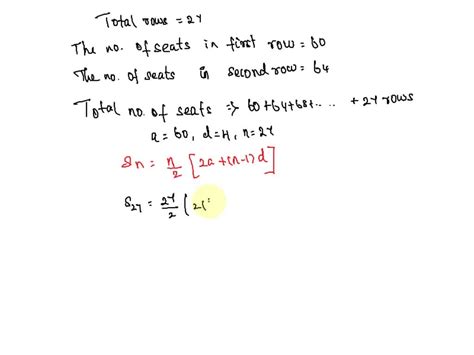 Total rows = 27
The no. of seats in first row = 60
The no. of seats in second row = 64
Total no. of seats => 60+64+68+..... + 27 rows
a = 60, d = 4, n = 27
Sn = n/2 [2a+(n-1)d]
S27 = 27/2 (2(